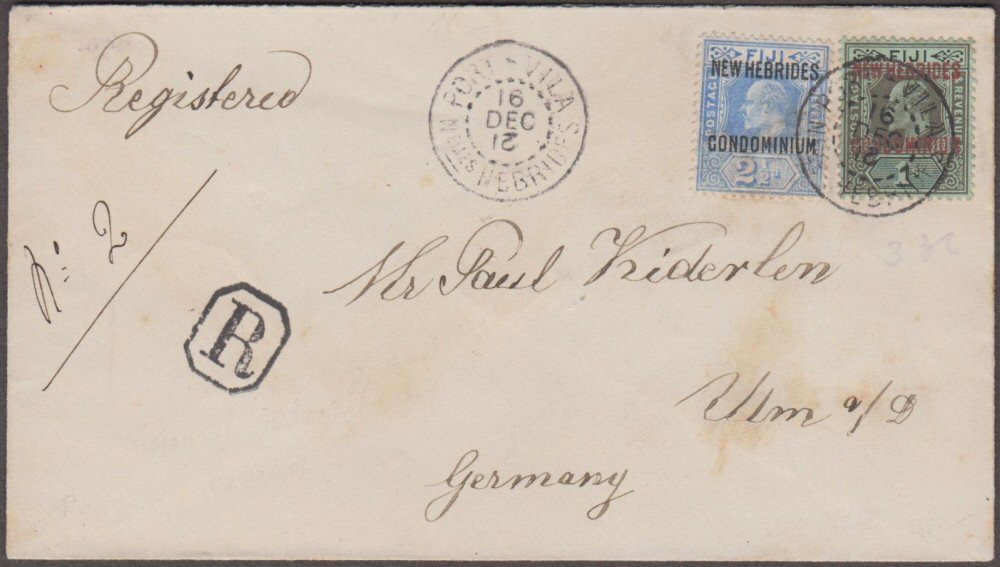 Registered
PORT-VILLA
16
DEC
12
NELLES HEBRIDES
FIJI
NEW HEBRIDES
POSTAGE
REVENUE
CONDOMINIUM
2½d
FIJI
NEW HEBRIDES
POSTAGE
REVENUE
CONDOMINIUM
No. 2
R
Mr Paul Kiderlen
Ulm a/D
Germany